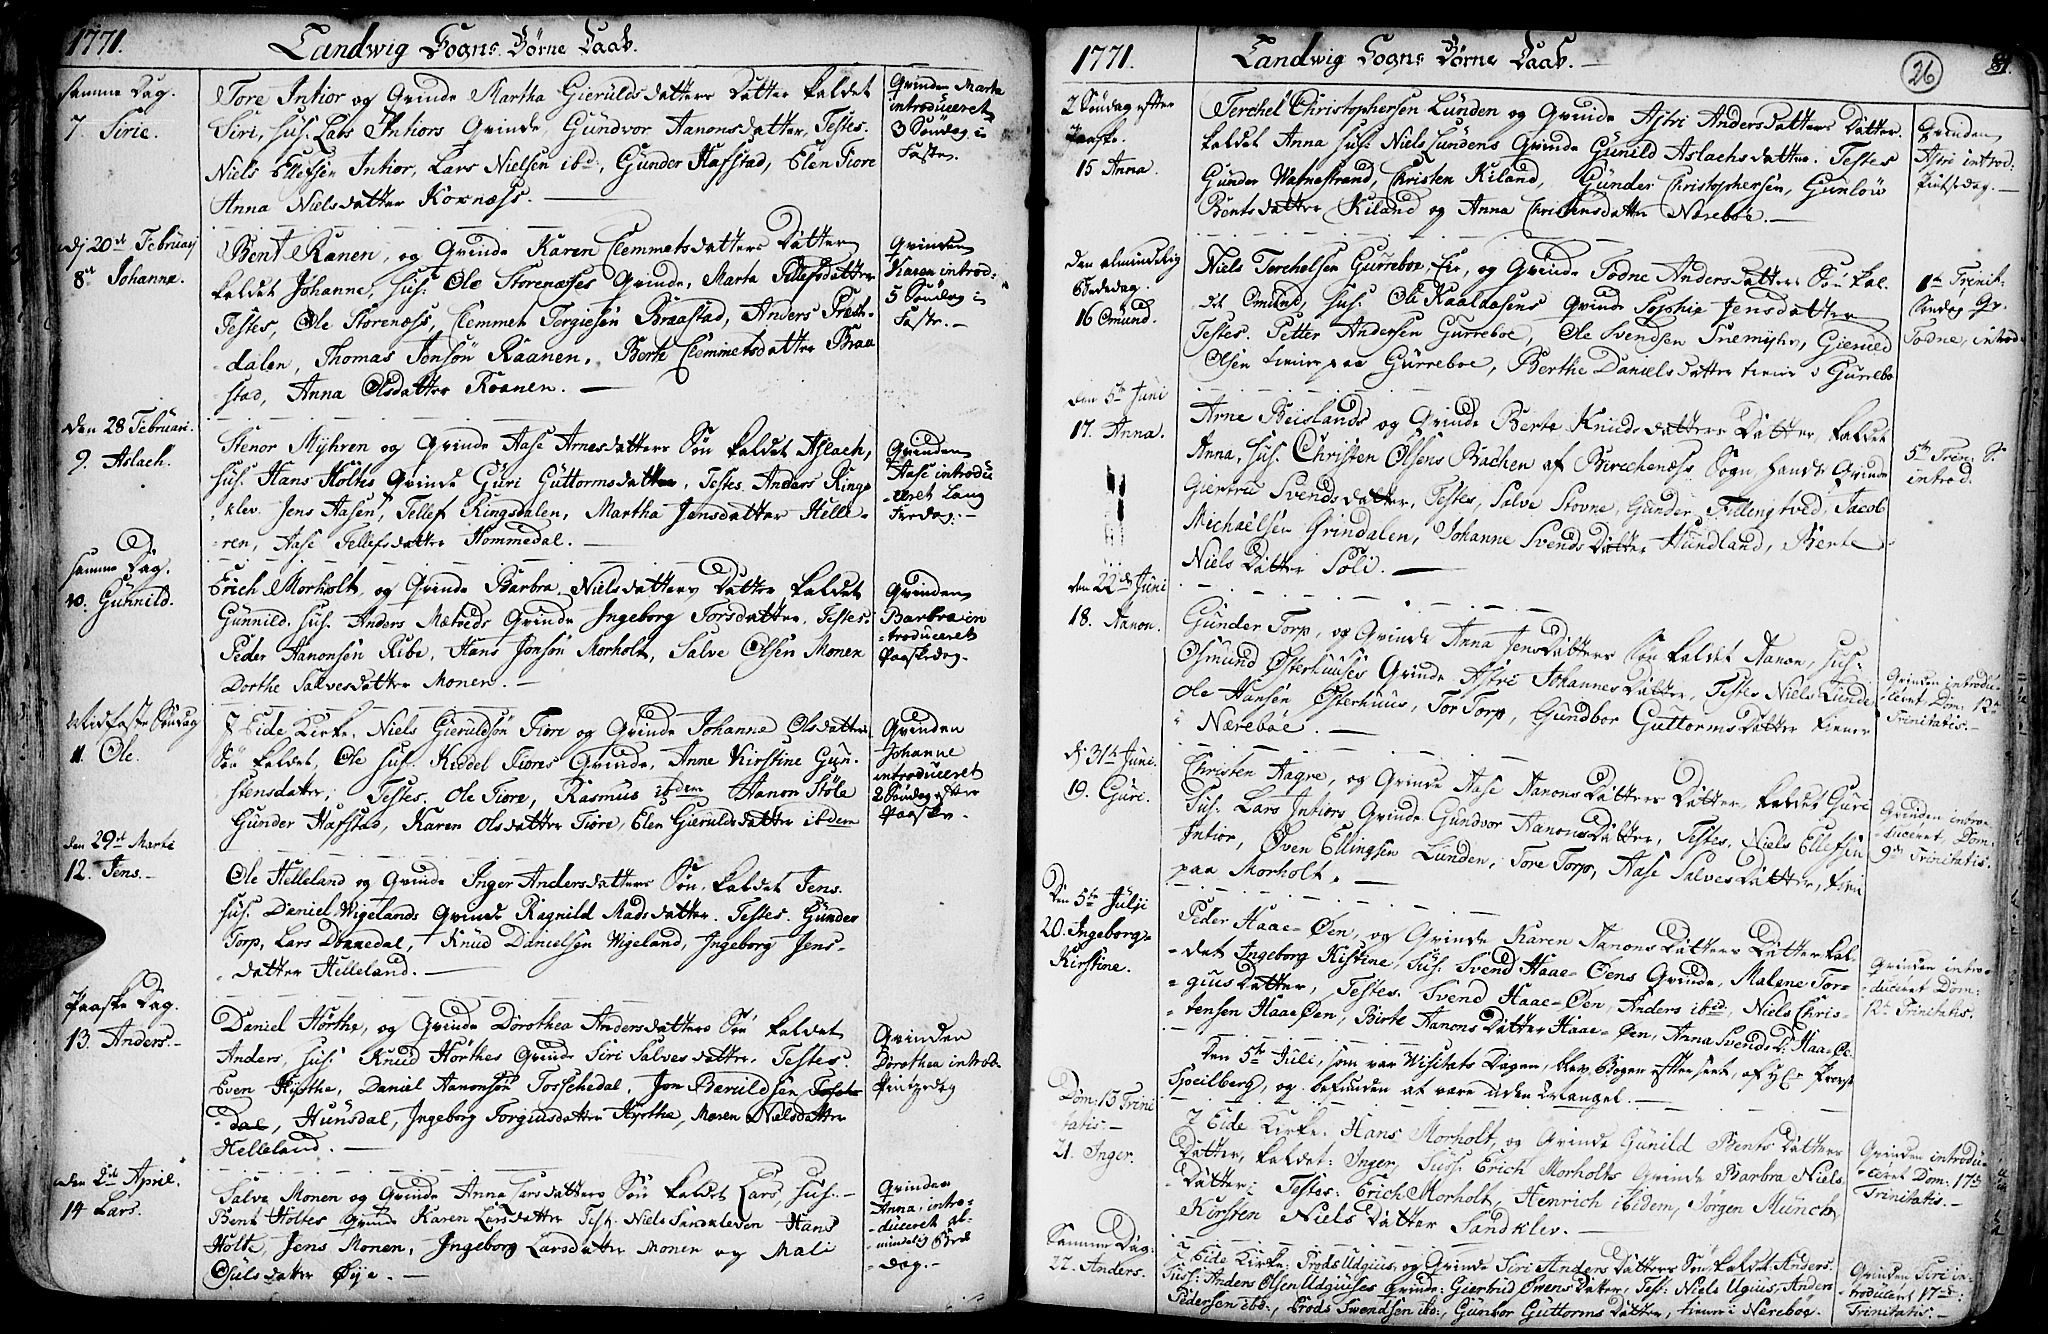 1771. Landwig Sogns Børne Daab.
Samme Dag.
7. Sirie.
Tore Intior og Qvinde Martha Gieruldsdatters Datter kaldet
Siri, Sus. Lars Intiors Qvinde, Gundvor Aanonsdatter, Testes.
Niels Ellefsen Intior, Lars Nielsen ibd:, Gunder Hafstad, Elen Fiore
Anna Nielsdatter Kornæss.
Qvinden Marta
introduceret
3 Søndag i
Faste.
dj 20de Februarj
8de Johanne.
Bent Ranen, og Qvinde Karen Clemmetsdatters Datter
kaldet Johanne, Sus: Ole Storenæsses Qvinde, Marta Tellefsdatter
Testes, Ole Storenæss, Clemmet Torgiesen Braastad, Anders Præst-
dalen, Thomas Jonsøn Raanen, Berte Clemmetsdatter Braa
stad, Anna Olsdatter Roanen.
Qvinden
Karen introd-
5 Søndag i
Faste.
den 28 Februari.
9. Aslach.
Stenor Myhren og Qvinde Aase Arnesdatters Søn kaldet Aslach,
Sus. Hans Holtes Qvinde Guri Guttormsdatter, Testes Anders Rings
klev. Jens Aasen, Tellef Ringsdalen, Martha Jensdatter Helle-
ren, Aase Tellefsdatter Hommedal.
Qvinden
Aase introdu
ceret Lang
Fredag.
Samme Dag.
10. Gunnild.
Erich Morholt og Qvinde Barbra Nielsdatters Datter kaldet
Gunnild. Sus. Anders Mætveds Qvinde Ingeborg Torsdatter. Testes.
Peder Aanonsøn Ribe, Hans Jonsøn Morholt, Salve Olsen Monen
Dorthe Salvesdatter Monen.
Qvinden
Barbra in
troduceret
Paaskedag.
Midfaste Søndag
11. Ole.
I Eide Kirke. Niels Gieruldsøn Fiore og Qvinde Johanne Olsdatters
Søn kaldet, Ole Sus. Keddel Fiores Qvinde, Anne Kirstine Gun-
stensdatter, Testes. Ole Fiore, Rasmus ibdem Aanon Støle
Gunder Hafstad, Karen Olsdatter Fiore, Elen Gieruldsdatter ibdem
Qvinden
Johanne
introduceret
2 Søndag efter
Paaske.
den 29de Marti
12. Jens.
Ole Helleland og Qvinde Inger Andersdatters Søn, kaldet Jens.
Sus. Daniel Wigelands Qvinde Ragnild Madsdatter. Testes. Gunder
Torp, Lars Dønnedal, Knud Danielsen Wigeland, Ingeborg Jens-
datter Helleland.
Paaske Dag.
13. Anders.
Daniel Hørthe, og Qvinde Dorothea Andersdatters Søn kaldet
Anders, Sus. Knud Hørthes Qvinde Siri Salvesdatter. Testes.
Even Hørthe, Daniel Aanonsøn Tosschedal, Jon Beruldsen
Hunsdal, Ingeborg Torgiusdatter Hørthe, Maren Nielsdatter
Helleland.
Qvinden
Dorothea introd.
Pintzedag
den 2de April.
14 Lars.
Salve Monen og Qvinde Anna Larsdatters Søn kaldet Lars, Sus.
Bent Holtes Qvinde Karen Larsdatter Test. Niels Sandkleven Hans
Holte, Jens Monen, Ingeborg Larsdatter Monen og Mali
Osulsdatter Øye.
Qvinden
Anna, intro-
duceret al-
mindelig Bede
dag.
1771. Landwig Sogns Børne Daab.
26
2 Søndag efter
Paaske.
15 Anna.
Terchel Christophersen Lunden og Qvinde Astri Andersdatters Datter
kaldet Anna Sus: Niels Lundens Qvinde Gunild Aslachsdatter. Testes
Gunder Watnestrand, Christen Kiland, Gunder Christophersen, Gunlou
Bentsdatter Kiland og Anna Christensdatter Nærebøe.
Qvinden
Astri introd:
Pintsedag.
den almindelig
Bededag.
16 Omund.
Niels Terchelsen Gurreboe, og Qvinde Todne Anders datters Søn kal-
det Omund, Sus. Ole Kaaldasens Qvinde Sophie Jensdatter
Testes. Petter Andersen Gurreboe, Ole Svendsen Tuemyhr, Gieruld
Olsen tienir paa Gurreboe, Berthe Danielsdatter tienir i Gurrebo
1te Trinit:
Søndag Qv.
Todne, introd
den 5te Juni
17. Anna.
Arne Beislands og Qvinde Berte Knudsdatters Datter, kaldet
Anna, Sus. Christen Olsens Bachen af Birchenæss Sogn, hands Qvinde
Giertru Svendsdatter, Testes, Salve Stovne, Gunder Fillengtved, Jacob
Michaelsen Grindalen, Johanne Svends Datter Hundland, Berte
Niels Datter Soli.
5te Trin: S.
introd.
den 22de Juni
18. Aanon.
Gunder Torp, og Qvinde Anna Jensdatters Søn kaldet Aanon, Sus.
Osmund Østerhuuses Qvinde Astri Johannes Datter, Testes Niels Lunde
Ole Hansen Østerhuus, Tor Torp, Gundbor Guttorms Datter tiener
i Nærebøe.
Qvinden introdu-
ceret Dom: 12te
Trinitatis.
dj 31te Juni.
19. Guri.
Christen Aagre, og Qvinde Aase Aanons Datters Datter, kaldet Guri
Sus: Lars Intiors Qvinde Gundvor Aanons Datter, Testes, Niels Ellefsen
Intior, Øven Ellingsen Lunden, Tore Torp, Aase Salves Datter, tien
paa Morholt.
Qvinden intro-
duceret, Dom:
9de Trinitatis.
Den 5te Julji
20. Ingeborg-
Kirstine.
Peder Haae-Øen, og Qvinde Karen Aanons Datters Datter kal-
det Ingeborg Kistine, Sus. Svend Haae-Øens Qvinde, Malene Tor-
gius Datter, Testes. Svend Haae-Øen, Anders ibd, Niels Chris-
tensen Haae Øen, Birte Aanons Datter Haae-Øen, Anna Svends D: Haae-Øe.
Qvinden intro-
duceret Dom:
12te Trinitatis.
Den 5te Juli, som var Wisitats Dagen, blev Bogen efterseet, af
og befunden at være uden Mangel.
Dom: 13 Trini
tatis.
21. Inger.
I Eide Kirke. Hans Morholt, og Qvinde Gunild Bents Datters
Datter, kaldet: Inger, Sus: Erich Morholts Qvinde Barbra Niels
Datter; Testes: Erich Morholt, Henrich ibidem, Jørgen Munch,
Kirsten Niels Datter Sandklev.
Qvinden introdu-
ceret Dom: 17de
Trinitatis.
Samme Dag:
22. Anders.
I Eide Kirke: Frods Udgius, og Qvinde Siri Anders Datters Søn, kaldet: Anders.
Sus: Anders Olsen Udgiuses Qvinde: Giertrud Evens Datter, Test: Niels Ugius, Anders
Pedersen ibd:, Frods Svendsen ibd:, Gunbor Guttorms Datter, tienne i Nerebøe.
Qvinden Siri in-
troduceret 17de
Trinitatis.